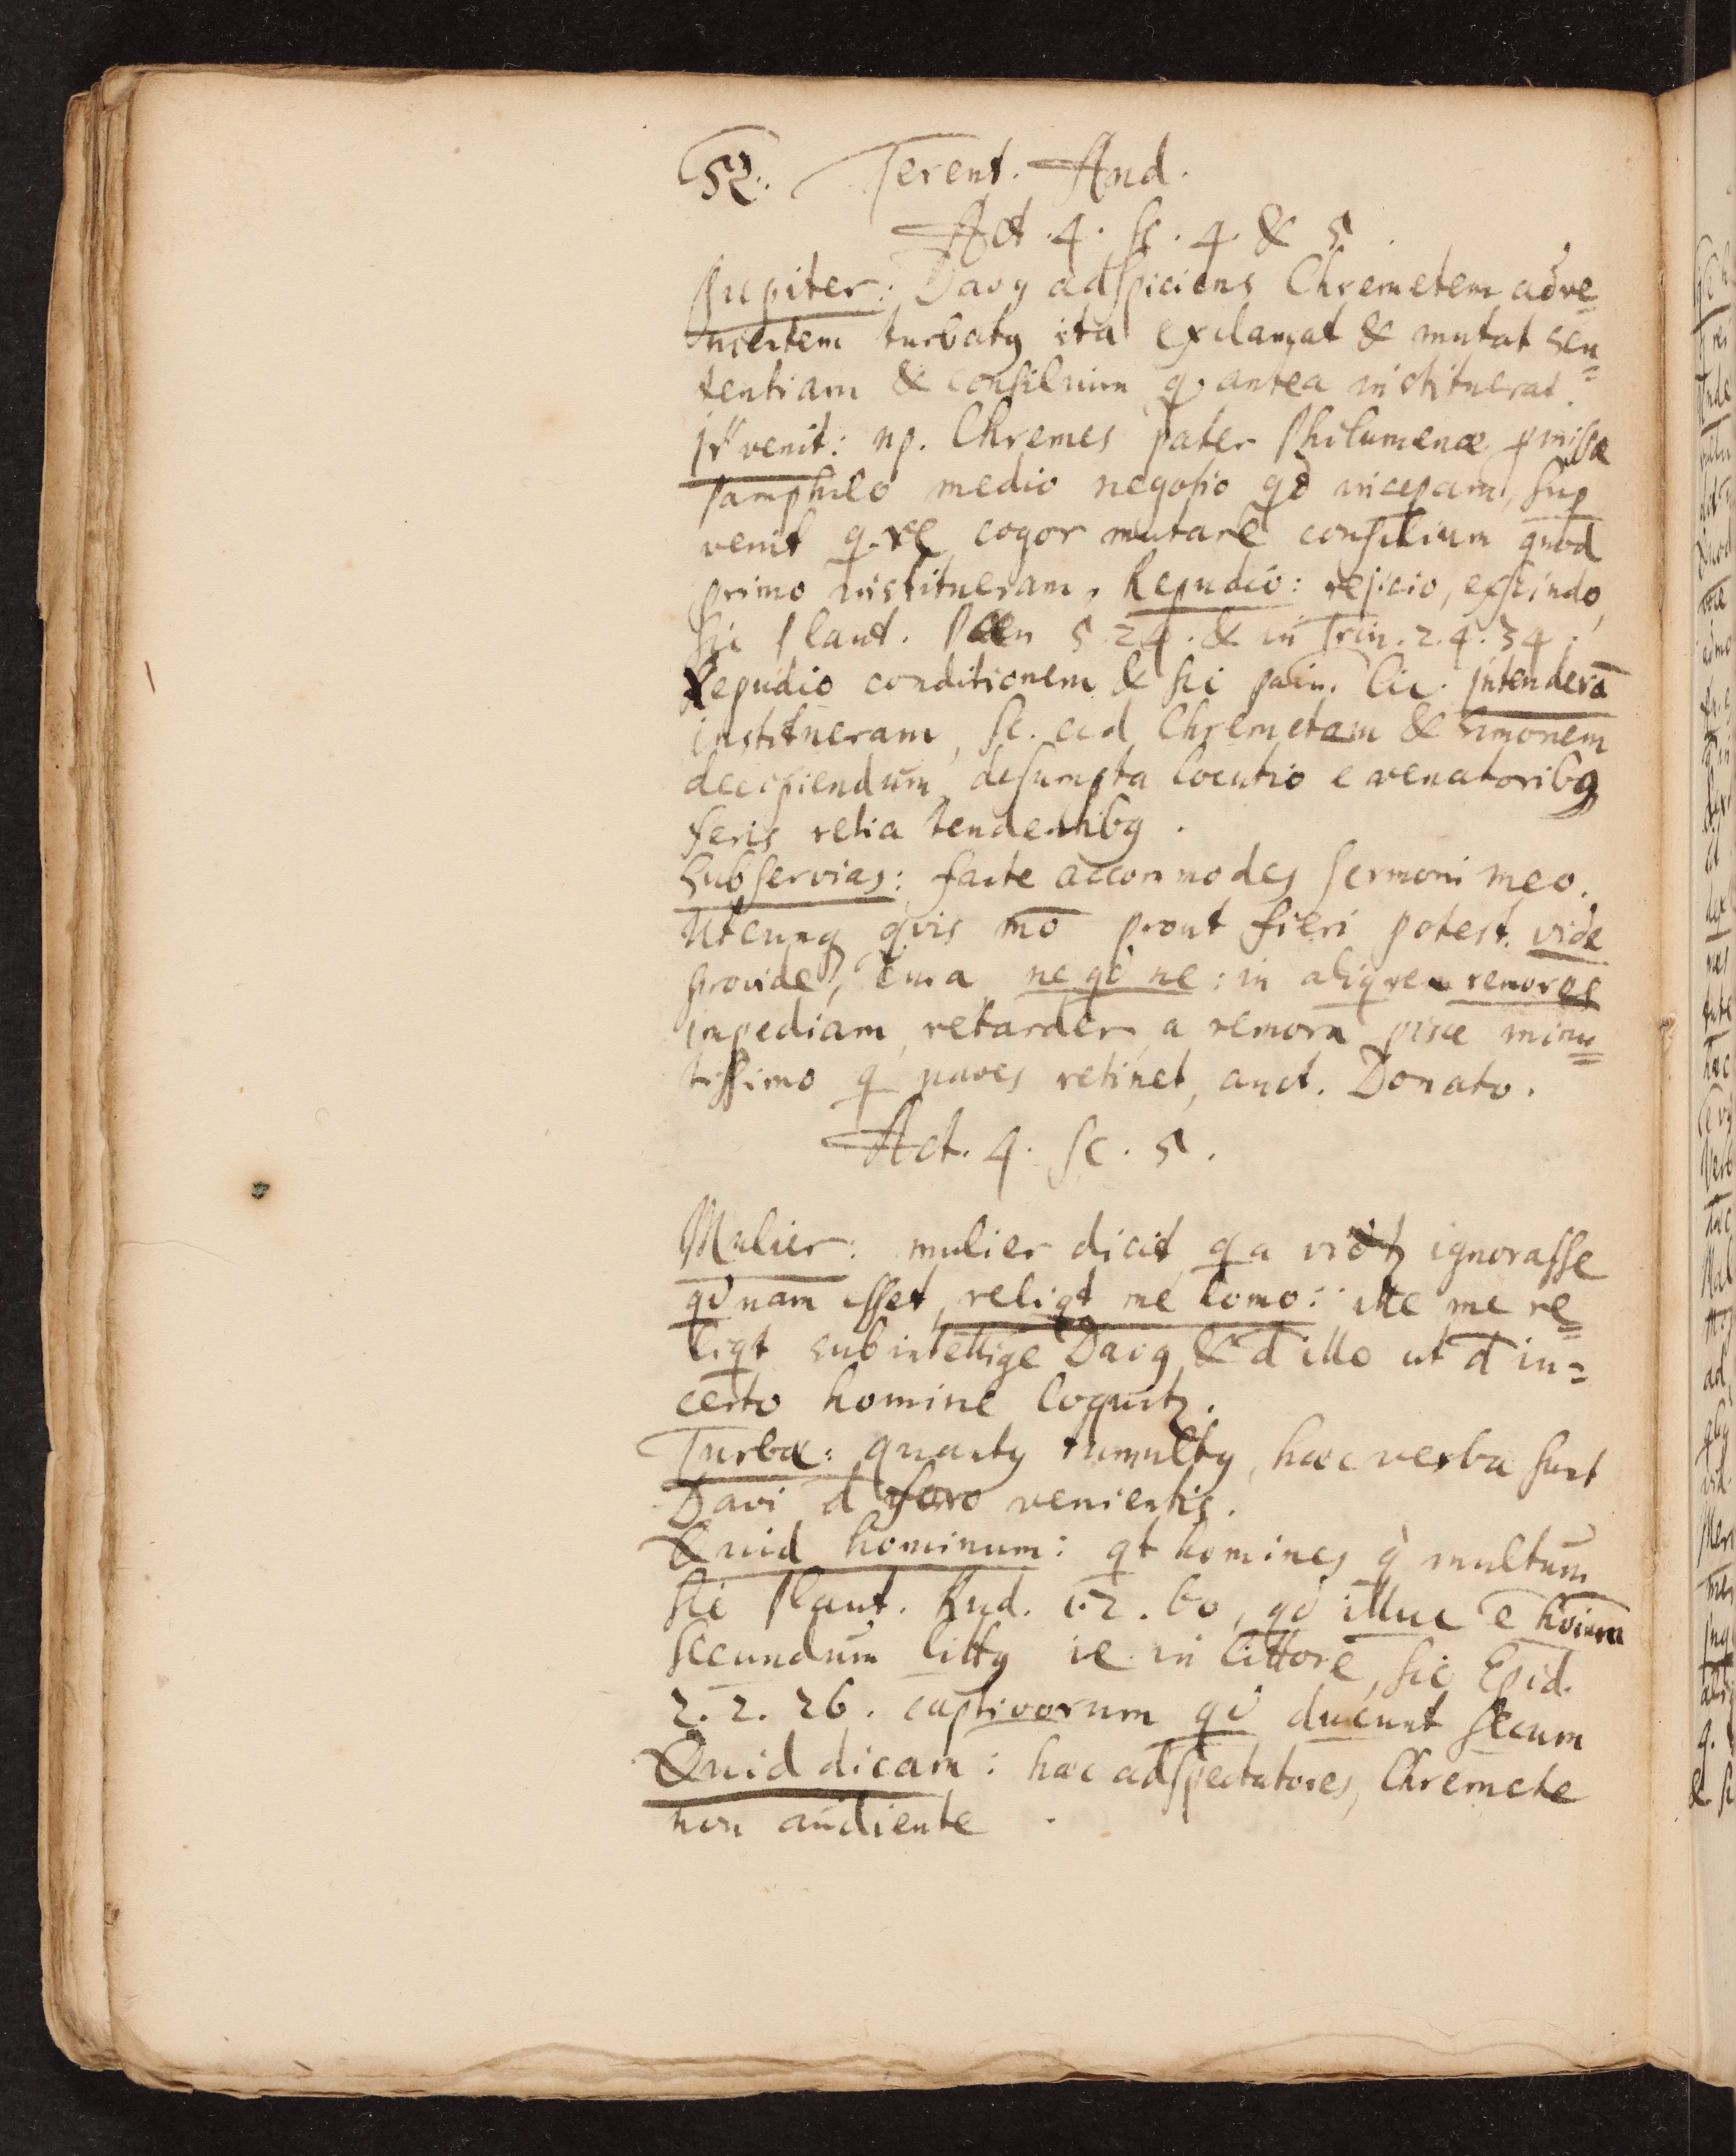 52. Terent. And.
Act. 4. sc. 4. & 5.
Jupiter: Davq adspiciens Chremetem adve-
nientem turbatq ita exclamat & mutat sen=
tentiam & consilium q antea instituerat.
venit: np. Chremes pater Philumenæ pmissæ
Pamphilo medio negotio qd inceperam, sup
venit q.re cogor mutare consilium quod
primo institueram, Repudio: rejicio, exscindo,
sic Plaut. Pœn 5. 24. & in Trin. 2. 4. 34.
Repudio conditionem & sic Cic. Intenderā
institueram, sc. ad Chremetam & Simonem
decipiendum, desumpta locutio e venatoribq
feris retia tendentibq.
Subservias: facte accommodes sermoni meo.
Utcunq qvis mō prout fieri potest. vide
provide, cura, ne qd ne: in aliq re remorer
impediam, retarder, a remora pisce minu=
tissimo q naves retinet, auct. Donato.
Act. 4. sc. 5.
Mulier: mulier dicit, qa ignorasse
qdnam esset, reliqt me homo: ille me re=
liqt subintellige Davq, & d illo ut d in=
certo homine loquitz.
Turbæ: quantq tumultq, hæc verba sunt
Davi d foro venientis.
Quid hominum: qt homines q multum
sic Plaut. Rud. 1. 2. 60, qd illuc ē hoium
secundum littq ie. in littore, sic Epid.
2. 2. 26. captivorum qd ducunt secum
Quid dicam: hæc ad spectatores, Chremete
non audiente.